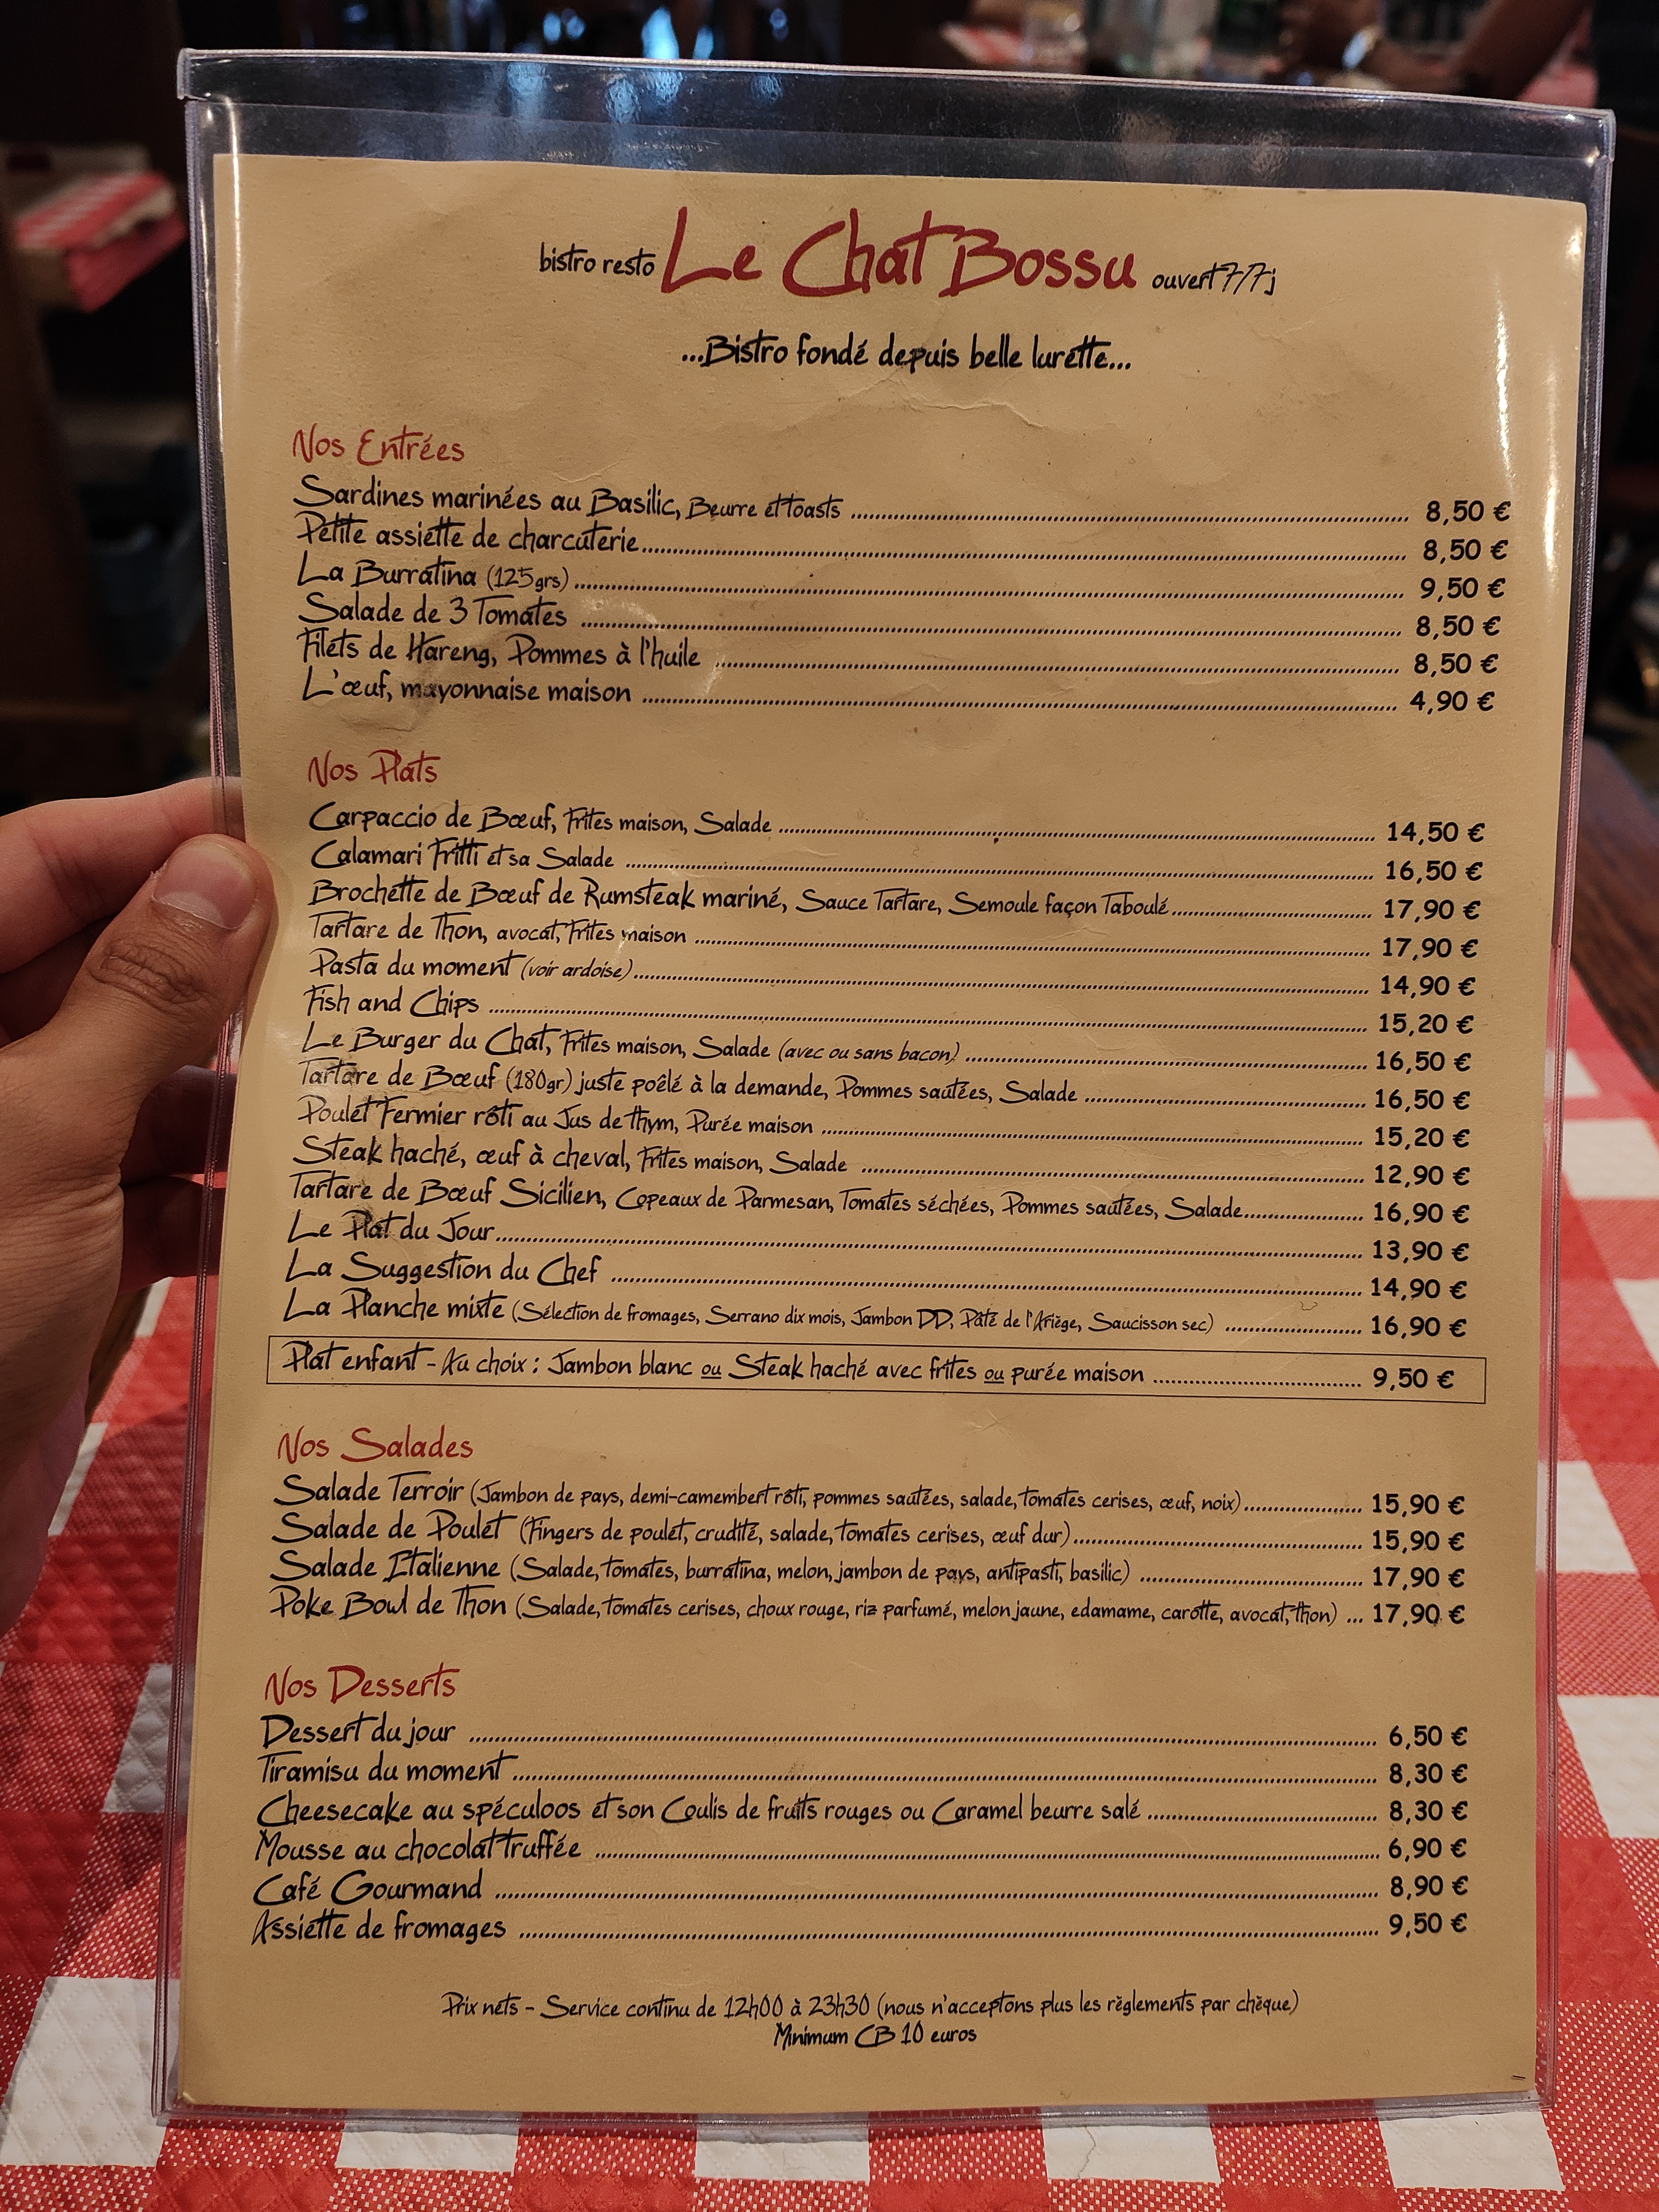 bistro resto Le Chat Bossu ouvert 7/7j
...Bistro fondé depuis belle lurette...
Nos Entrées
Sardines marinées au Basilic, Beurre et toasts ........ 8,50 €
Petite assiette de charcuterie ........ 8,50 €
La Burratina (125grs) ........ 9,50 €
Salade de 3 Tomates ........ 8,50 €
Filets de Hareng, Pommes à l'huile ........ 8,50 €
L'œuf, mayonnaise maison ........ 4,90 €
Nos Plats
Carpaccio de Bœuf, Frites maison, Salade ........ 14,50 €
Calamari Fritti et sa Salade ........ 16,50 €
Brochette de Bœuf de Rumsteak mariné, Sauce Tartare, Semoule façon Taboulé ........ 17,90 €
Tartare de Thon, avocat, Frites maison ........ 17,90 €
Pasta du moment (voir ardoise) ........ 14,90 €
Fish and Chips ........ 15,20 €
Le Burger du Chat, Frites maison, Salade (avec ou sans bacon) ........ 16,50 €
Tartare de Bœuf (180gr) juste poêlé à la demande, Pommes sautées, Salade ........ 16,50 €
Poulet Fermier rôti au Jus de thym, Purée maison ........ 15,20 €
Steak haché, œuf à cheval, Frites maison, Salade ........ 12,90 €
Tartare de Bœuf Sicilien, Copeaux de Parmesan, Tomates séchées, Pommes sautées, Salade ........ 16,90 €
Le Plat du Jour ........ 13,90 €
La Suggestion du Chef ........ 14,90 €
La Planche mixte (Sélection de fromages, Serrano dix mois, Jambon DD, Pâté de l'Ariège, Saucisson sec) ........ 16,90 €
Plat enfant - Au choix : Jambon blanc ou Steak haché avec frites ou purée maison ........ 9,50 €
Nos Salades
Salade Terroir (Jambon de pays, demi-camembert rôti, pommes sautées, salade, tomates cerises, œuf, noix) ........ 15,90 €
Salade de Poulet (Fingers de poulet, crudité, salade, tomates cerises, œuf dur) ........ 15,90 €
Salade Italienne (Salade, tomates, burratina, melon, jambon de pays, antipasti, basilic) ........ 17,90 €
Poke Bowl de Thon (Salade, tomates cerises, choux rouge, riz parfumé, melon jaune, edamame, carotte, avocat, thon) ... 17,90 €
Nos Desserts
Dessert du jour ........ 6,50 €
Tiramisu du moment ........ 8,30 €
Cheesecake au spéculoos et son Coulis de fruits rouges ou Caramel beurre salé ........ 8,30 €
Mousse au chocolat truffée ........ 6,90 €
Café Gourmand ........ 8,90 €
Assiette de fromages ........ 9,50 €
Prix nets - Service continu de 12h00 à 23h30 (nous n'acceptons plus les règlements par chèque)
Minimum CB 10 euros